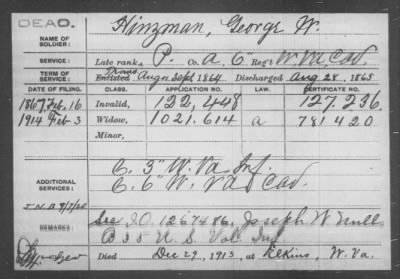 DEAD.
Hinzman, George W.
NAME OF SOLDIER:
SERVICE: Late rank, P. Co. A, 6" Reg't W. Va. Cav.
TERM OF SERVICE: Enlisted Aug Sept 1864 Discharged Aug 28, 1865
DATE OF FILING. CLASS. APPLICATION NO. LAW. CERTIFICATE NO.
1867 Feb. 16 Invalid, 122,448 127,236
1914 Feb 3 Widow, 1021.614 a 781420
Minor,
C. 3" W. Va Inf.
ADDITIONAL SERVICES: C. 6" W. Va Cav.
REMARKS: See I.O. 1267486, Joseph W.
B 35 U. S. Vol. Inf
Died Dec 29, 1913, at Elkins, W. Va.